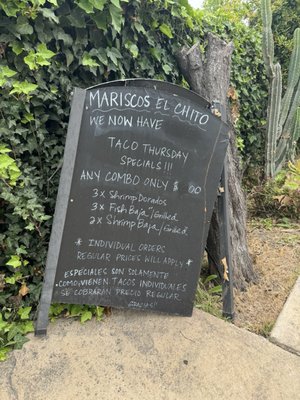 MARISCOS EL CHITO
WE NOW HAVE
TACO THURSDAY
SPECIALS!!!
ANY COMBO ONLY $ 00
3 x Shrimp Dorados
3 x Fish Baja/Grilled
2 x Shrimp Baja/Grilled
* INDIVIDUAL ORDERS
REGULAR PRICES WILL APPLY *
ESPECIALES SON SOLAMENTE
COMO VIENEN TACOS INDIVIDUALES
SE COBRARAN PRECIO REGULAR
GRACIAS!!